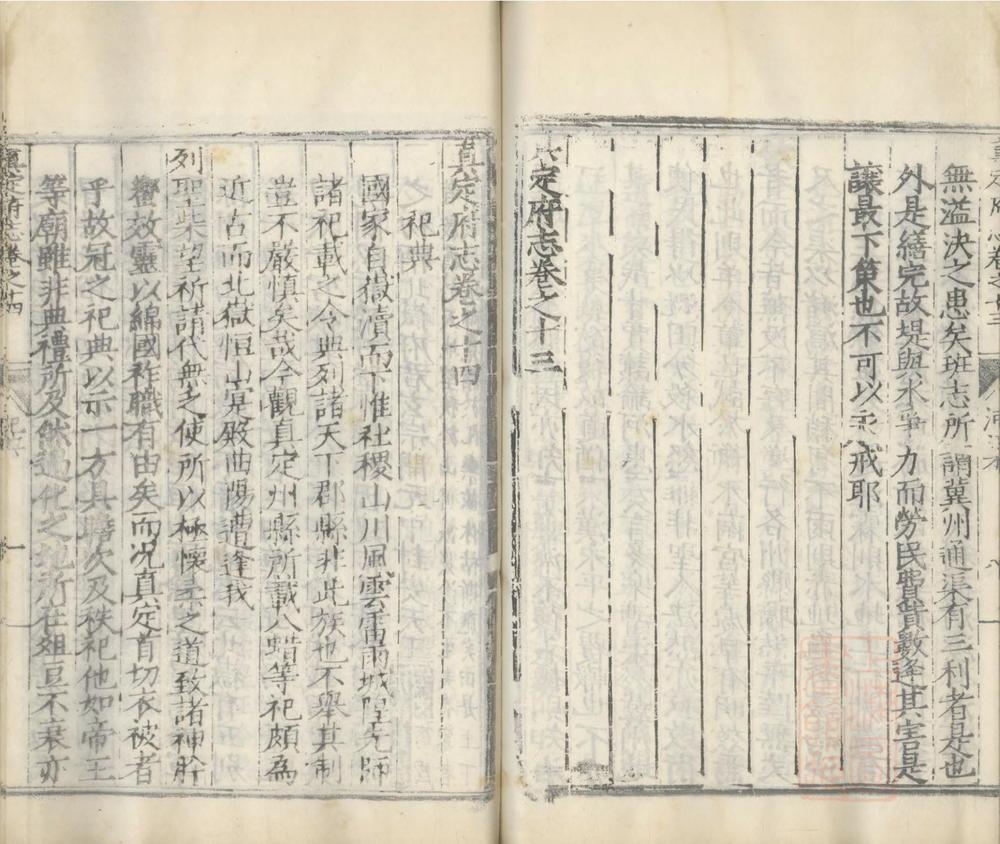 無溢決之患矣班志所謂冀州通渠有三利者是也
外是繕完故堤與水爭力而勞民費貲數逢其害是
讓最下策也不可以永戒耶
定府志卷之十三
真定府志卷之十四
祀典
國家自嶽瀆而下惟社稷山川風雲雷雨城隍先師
諸祀載之令典列諸天下郡縣非此族也不舉其制
豈不嚴慎矣哉今觀真定州縣所載八蜡等祀頗為
近古而北嶽恒山寔殿曲陽遭逢我
列聖柴望祈請代無乏使所以極懷柔之道致諸神肸
蠁效靈以綿國祚職有由矣而况真定首切衣被者
乎故冠之祀典以示一方具瞻次及秩祀他如帝王
等廟雖非典禮所及然過化之地所在俎豆不衰亦
真定府志卷之十四